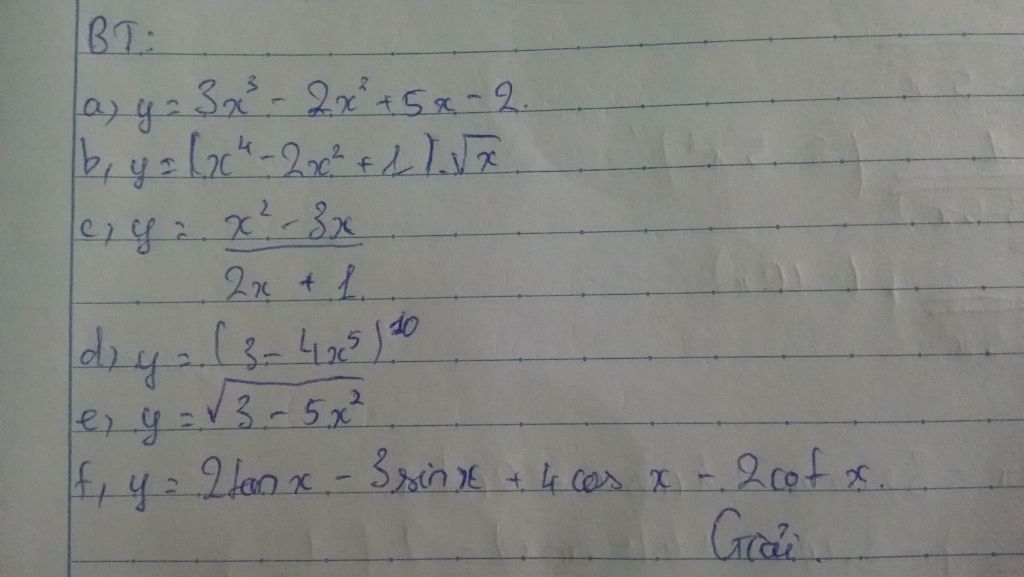 BT:
a) y = 3x³ - 2x² + 5x - 2.
b, y = (x⁴ - 2x² + 1).√x
c) y = x² - 3x
2x + 1
d) y = (3 - 4x⁵)¹⁰
e) y = √3 - 5x²
f, y = 2tan x - 3sin x + 4 cos x - 2 cot x.
Giải.